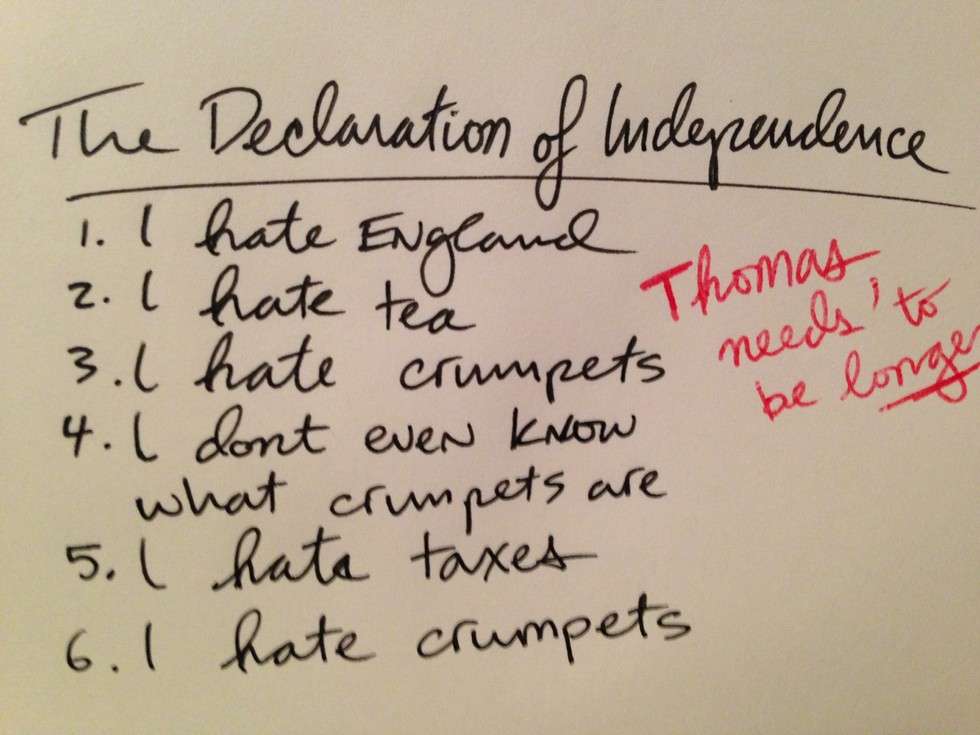 The Declaration of Independence
1. I hate England
2. I hate tea
3. I hate crumpets
4. I dont even know
what crumpets are
5. I hate taxes
6. I hate crumpets
Thomas
needs to
be longer